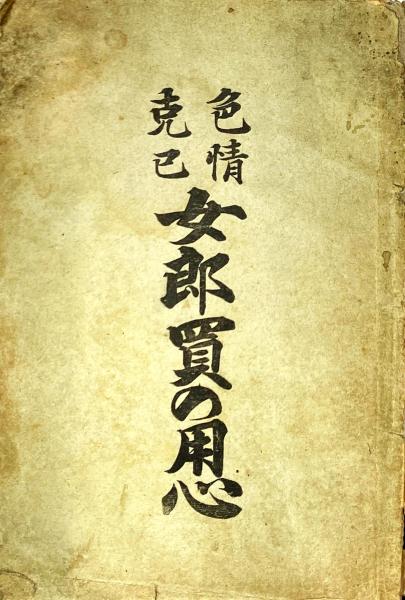 色情
克己
女郎買の用心